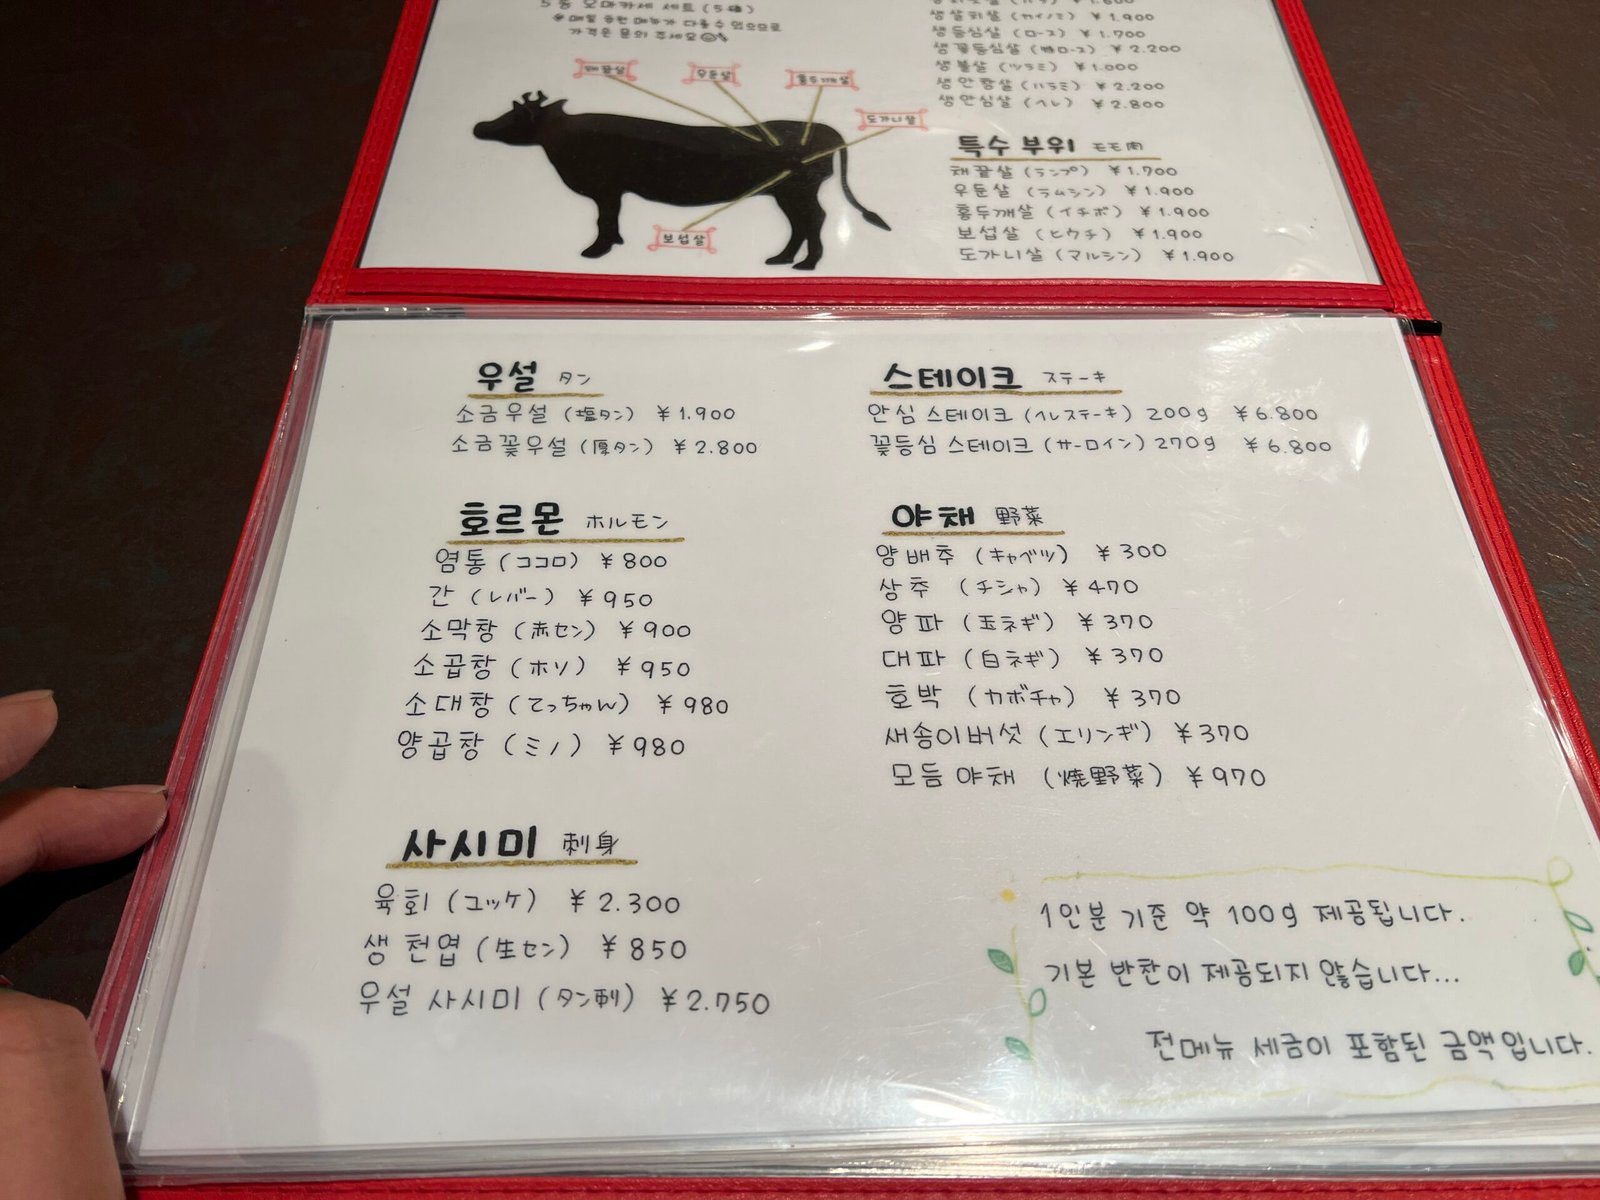 5종 오마카세 세트 (5種)
※매일 종류 메뉴가 다를수 있으므로
가격은 문의 주세요
채끝살
우둔살
홍두깨살
도가니살
보섭살
¥1.600
생살치살 (カイノミ) ¥1.900
생등심살 (ロース) ¥1.700
생꽃등심살 (特ロース) ¥2.200
생볼살 (ツラミ) ¥1.000
생안창살 (ハラミ) ¥2.200
생안심살 (ヘレ) ¥2.800
특수 부위 モモ肉
채끝살 (ランプ) ¥1.700
우둔살 (ラムシン) ¥1.900
홍두깨살 (イチボ) ¥1.900
보섭살 (ヒウチ) ¥1.900
도가니살 (マルシン) ¥1.900
우설 タン
소금우설 (塩タン) ¥1.900
소금꽃우설 (厚タン) ¥2.800
호르몬 ホルモン
염통 (ココロ) ¥800
간 (レバー) ¥950
소막창 (赤セン) ¥900
소곱창 (ホソ) ¥950
소대창 (てっちゃん) ¥980
양곱창 (ミノ) ¥980
사시미 刺身
육회 (ユッケ) ¥2.300
생천엽 (生セン) ¥850
우설 사시미 (タン刺) ¥2.750
스테이크 ステーキ
안심 스테이크 (ヘレステーキ) 200g ¥6.800
꽃등심 스테이크 (サーロイン) 270g ¥6.800
야채 野菜
양배추 (キャベツ) ¥300
상추 (チシャ) ¥470
양파 (玉ネギ) ¥370
대파 (白ネギ) ¥370
호박 (カボチャ) ¥370
새송이버섯 (エリンギ) ¥370
모듬 야채 (焼野菜) ¥970
1인분 기준 약 100g 제공됩니다.
기본 반찬이 제공되지 않습니다...
전메뉴 세금이 포함된 금액입니다.